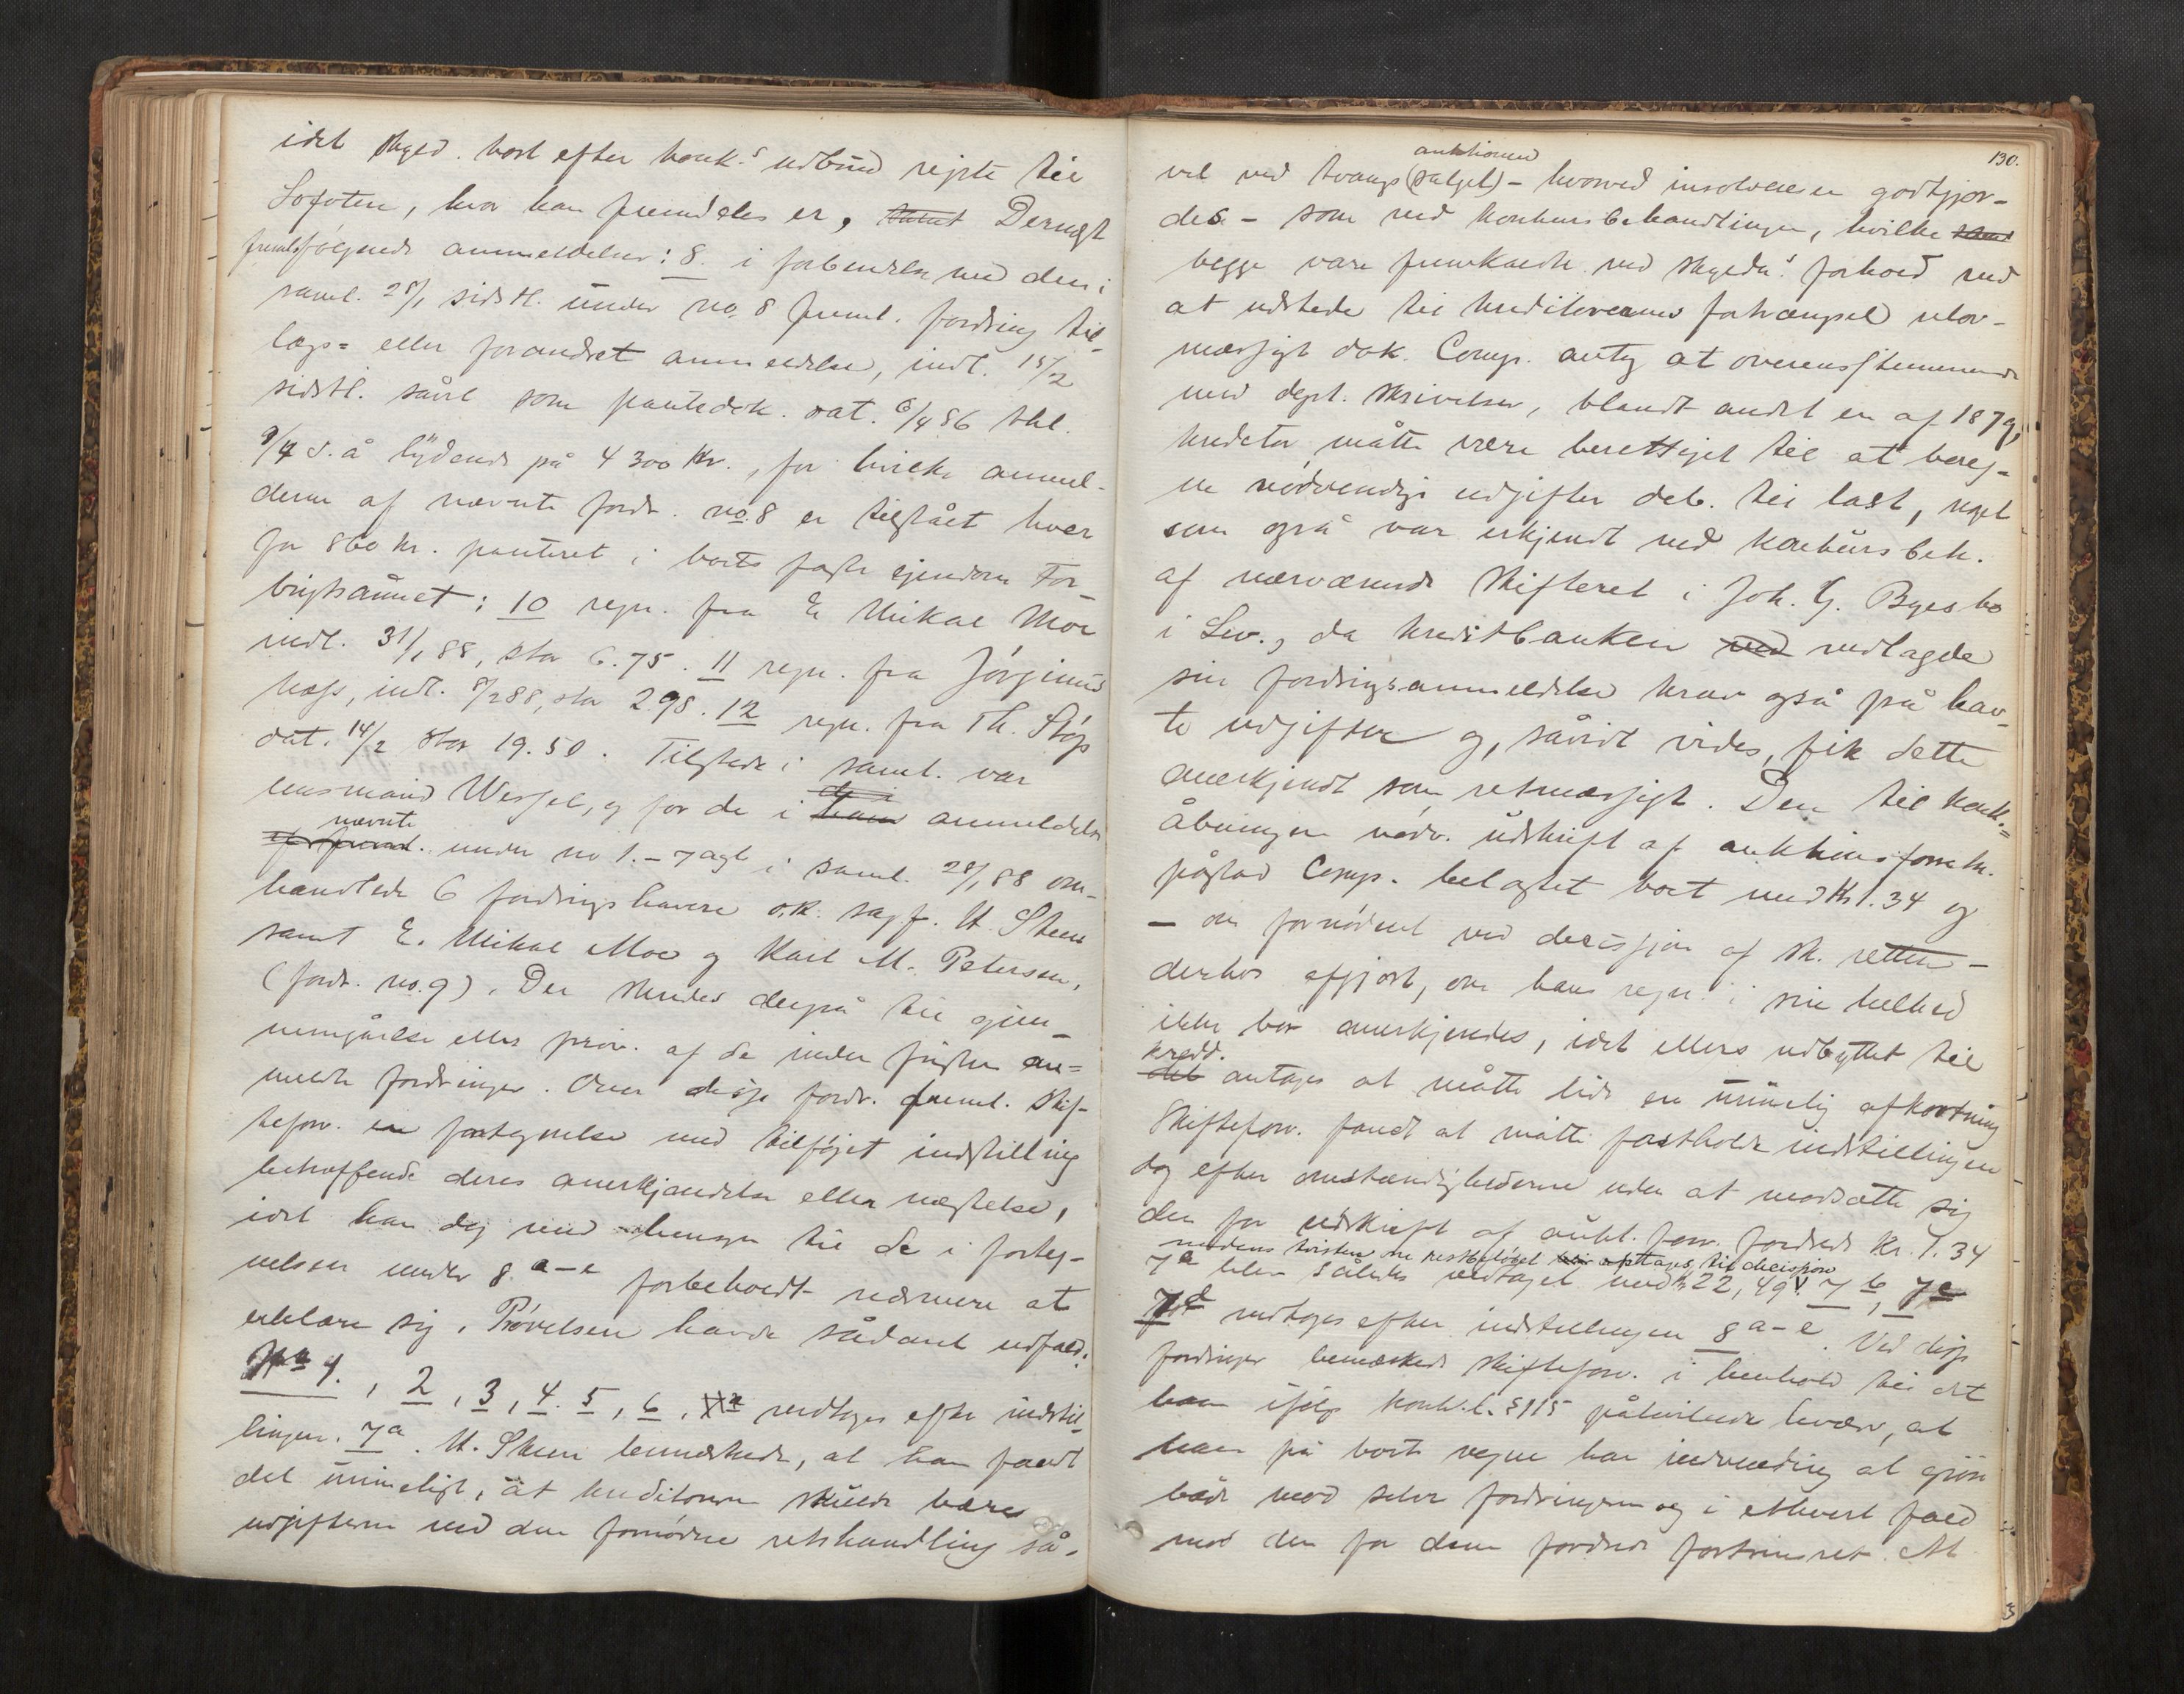 idet skyld. kort efter konk.s udbrud rejste til
Lofoten, hvor han fremdeles er, samt Dernæst
fremlæs følgende anmeldelser: 8. i forbindelse med den i
saml. 28/1 sidstl. under no. 8 freml. fordring til-
lægs- eller forandret anmeldelse, indl. 15/2
sidstl. såvel som pantedok. dat. 6/4 86 thl.
9/4 s. å lydende på 4300 Kr., for hvilke anmel-
derne af nævnte fordr. no. 8 er tilstået hver
for 860 kr. panteret i boets faste ejendom For-
brigtsaunet; 10 regn. fra E. Mikal Moe
indl. 31/1 88, stor 6.75. 11 regn. fra Jørginus
Næss, indl. 8/2 88, stor 2.98. 12 regn. fra Th. Støp
dat. 14/2 stor 19.50. Tilstede i saml. var
lensmand Wessel, og for de i anmeldelsen
nævnte
under no 1.-7 agl i saml. 28/1 88 om-
handlede 6 fordringshavere o.r. sagf. U. Steen
samt E. Mikal Moe og Karl M. Petersen,
(fordr. no. 9). Der skredes derpå til gjen-
nemgåelse eller prøv. af de inden fristen an-
meldte fordringer. Over disse fordr. freml. skif-
teforv. en fortegnelse med tilføjet indstilling
betræffende deres anerkjendelse eller nægtelse,
idet han dog med hensyn til de i forteg-
nelsen under 8 a-e forbeholdt nærmere at
erklære sig. Prøvelsen havde sådant udfald:
No 1., 2, 3, 4. 5, 6, vedtoges efter indstil-
lingen. 7a. U. Steen bemærkede, at han fandt
det urimeligt, at kreditorerne skulde bære
udgifterne ved den fornødne retshandling så-
130.
auktionen
vel ved tvangs(salget) - hvorved insolvensen godtgjor-
des - som ved konkursbehandlingen, hvilke
begge vare fremkaldte ved skyldn.s forhold ved
at udstede til kreditorernes fortrængsel ulov-
mæssigt dok. Comp. antog at overensstemmende
med dept. skrivelser, blandt andet en af 1879,
kreditor måtte være berettiget til at bereg-
ne nødvendige udgifter deb. til last, noget
som også var erkjendt ved konkursbeh.
af nærværende skifteret i Joh. G. Byes bo
i Lev., da kreditbanken vedlagde
sin fordringsanmeldelse krav også på hav-
te udgifter og, såvidt vides, fik dette
anerkjendt som retmæssigt. Den til konk.-
åbningen nødv. udskrift af auktionsforretn.
påstod Comp. belastet boet med Kr 1.34 og
- om fornødent ved decisjon af sk. retten -
derhos afgjort, om hans regn. i sin helhed
ikke bør anerkjendes, idet ellers udbyttet til
kredd.
antages at måtte lide en urimelig afkortning
Skifteforv. fandt at måtte fastholde indstillingen
dog efter omstændighederne uden at modsætte sig
den for udskrift af aukt. forr. fordrede Kr. 1.34
medens tvisten om restbeløbet optages til decisjon
7a blev således vedtaget med kr 22,49. 7b, 7c
7d vedtoges efter indstillingen 8 a-e. Ved disse
fordringer bemærkede skifteforv. i henhold til det
ham ifølge konk.l. § 115 påhvilende hverv, at
han på boets vegne har indvending at gjøre
både mod selve fordringerne og i ethvert fald
mod den for dem fordrede fortrinsret. At